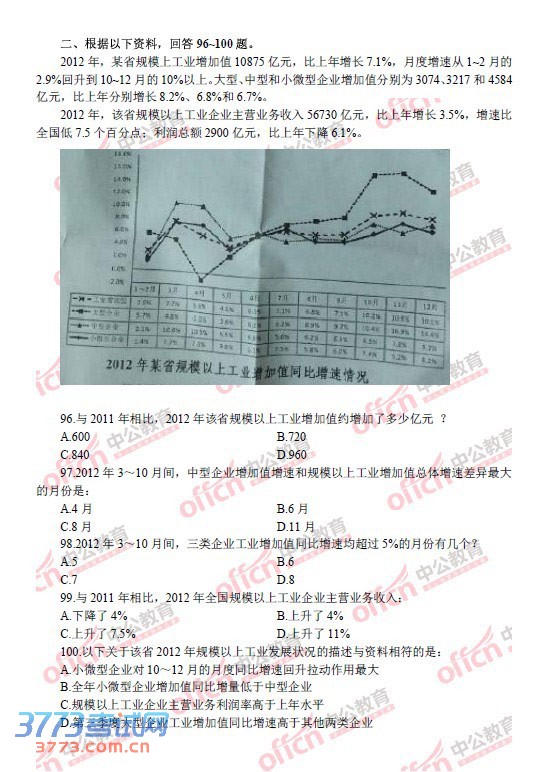 二、根据以下资料，回答96~100题。
2012年，某省规模上工业增加值10875亿元，比上年增长7.1%，月度增速从1~2月的
2.9%回升到10~12月的10%以上。大型、中型和小微型企业增加值分别为3074、3217和4584
亿元，比上年分别增长8.2%、6.8%和6.7%。
2012年，该省规模以上工业企业主营业务收入56730亿元，比上年增长3.5%，增速比
全国低7.5个百分点；利润总额2900亿元，比上年下降6.1%。
14.0%
12.0%
10.0%
8.0%
6.0%
4.0%
2.0%
0.0%
-2.0%
1~2月 3月 4月 5月 6月 7月 8月 9月 10月 11月 12月
大型企业
中型企业
小微型企业
2012年某省规模以上工业增加值同比增速情况
96.与2011年相比，2012年该省规模以上工业增加值约增加了多少亿元 ？
A.600 B.720
C.840 D.960
97.2012年3～10月间，中型企业增加值增速和规模以上工业增加值总体增速差异最大
的月份是：
A.4月 B.6月
C.8月 D.11月
98.2012年3～10月间，三类企业工业增加值同比增速均超过5%的月份有几个？
A.5 B.6
C.7 D.8
99.与2011年相比，2012年全国规模以上工业企业主营业务收入：
A.下降了4% B.上升了4%
C.上升了7.5% D.上升了11%
100.以下关于该省2012年规模以上工业发展状况的描述与资料相符的是：
A.小微型企业对10～12月的月度同比增速回升拉动作用最大
B.全年小微型企业增加值同比增量低于中型企业
C.规模以上工业企业主营业务利润率高于上年水平
D.第三季度大型企业工业增加值同比增速高于其他两类企业
3773考试网
www.3773.com.cn
offcn中公教育